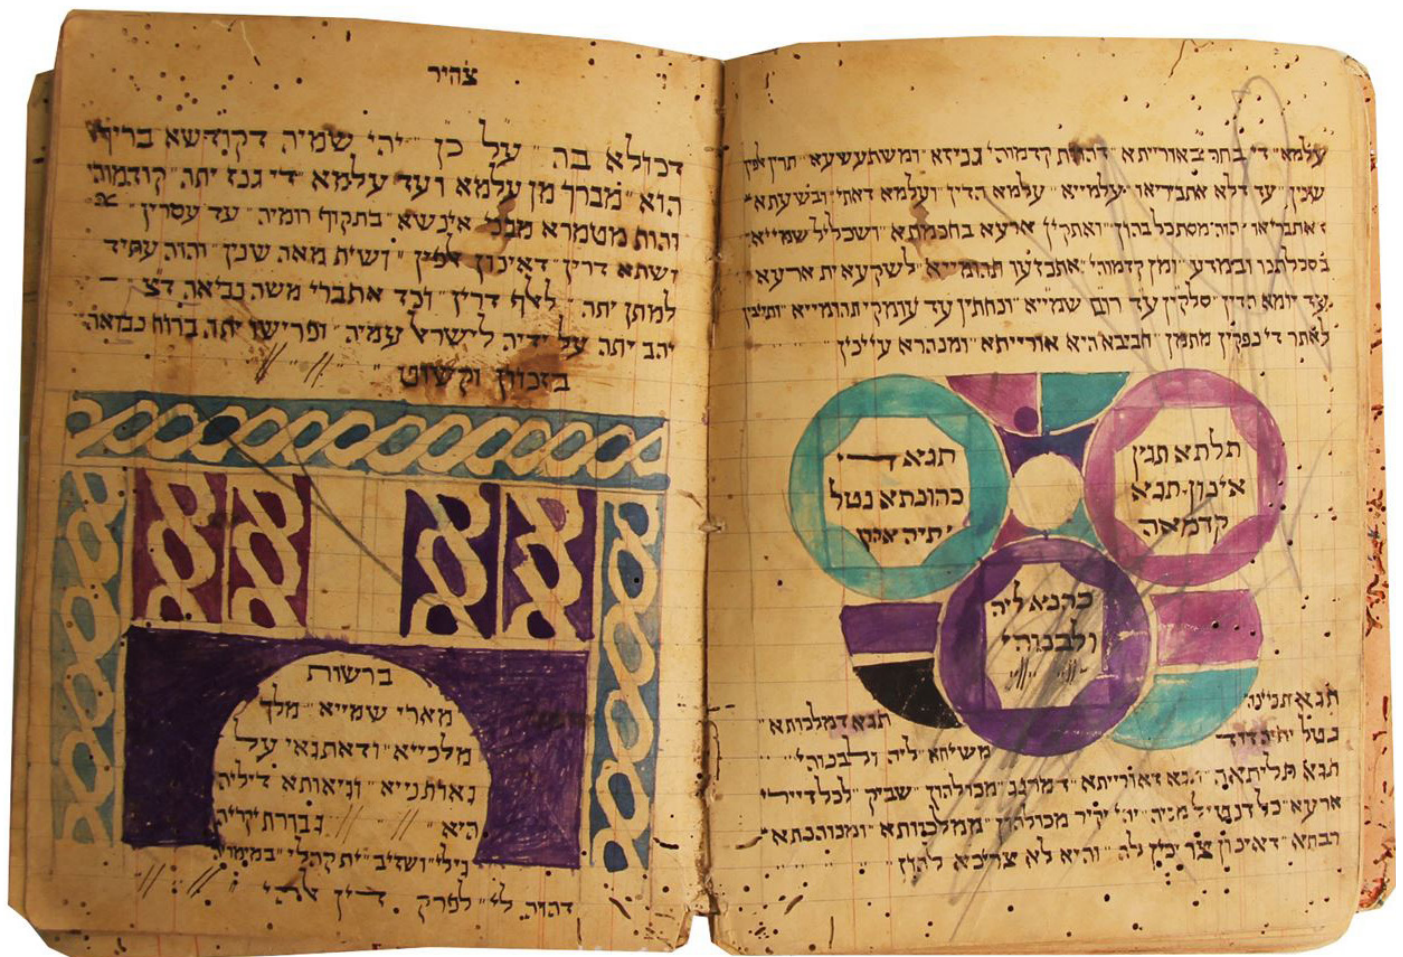 עלמא״ די בחר באורייתא ״דהות קדמוהי גניזא״ ומשתעשעא״ תרין אלפין
שנין״ עד דלא אתבריאו״ עלמייא״ עלמא הדין״ ועלמא דאתי״ ובשעתא״
דאתבריאו״ הוה מסתכל בהון״ ואתקין״ ארעא בחכמתא״ ושכליל שמייא״
בסכלתנו ובמדע״ ומן קדמוהי״ אתבזעו תהומייא״ לשקעא ית ארעא״
ועד יומא הדין״ סלקין עד רום שמייא״ ונחתין עד עומקי תהומייא״ ותיבין
לאתר די נפקין מתמן״ חביבא היא אורייתא״ ומנהרא עייניך״
תלתא תגין
אינון תגא
קדמאה
תגא די
כהונתא נטל
יתיה אהרן
כהנא ליה
ולבנוהי
תגא תניינה
תגא דמלכותא״
נטל יתיה דוד
משיחא״ ליה ולבנוהי
תגא תליתאה״ תגא דאורייתא״ דמרגג״ מכולהון״ שביק״ לכל דיירי
ארעא״ כל דנטיל מניה״ יהי יקיר מכולהון״ ממלכותא״ ומכהנתא
רבתא״ דאינון צריכין לה״ והיא לא צריכא להון״
צהיר
דכולא בה״ על כן״ יהי שמיה דקודשא בריך
הוא״ מברך מן עלמא ועד עלמא״ די גנז יתה״ קודמוהי
והות מטמרא מבני אינשא״ בתקוף רומיה״ עד עסרין״
ושתא דרין״ דאינון אלפין״ ושית מאה שנין״ והוה עתיד
למתן יתה״ לאלף דרין״ וכד אתברי משה נביאה דצ
יהב יתה על ידיה לישראל עמיה״ ופרישו יתה ברוח נבואה״
בזכוון וקשוט
ברשות
מארי שמייא״ מלך
מלכייא״ ודאתגאי על
גאותנייא״ וגיאותא דיליה
היא״ גבורת יקריה
גילי״ ושזיב״ ית קהלי״ במימריה
דהוה לי״ לפרק דין אלהי